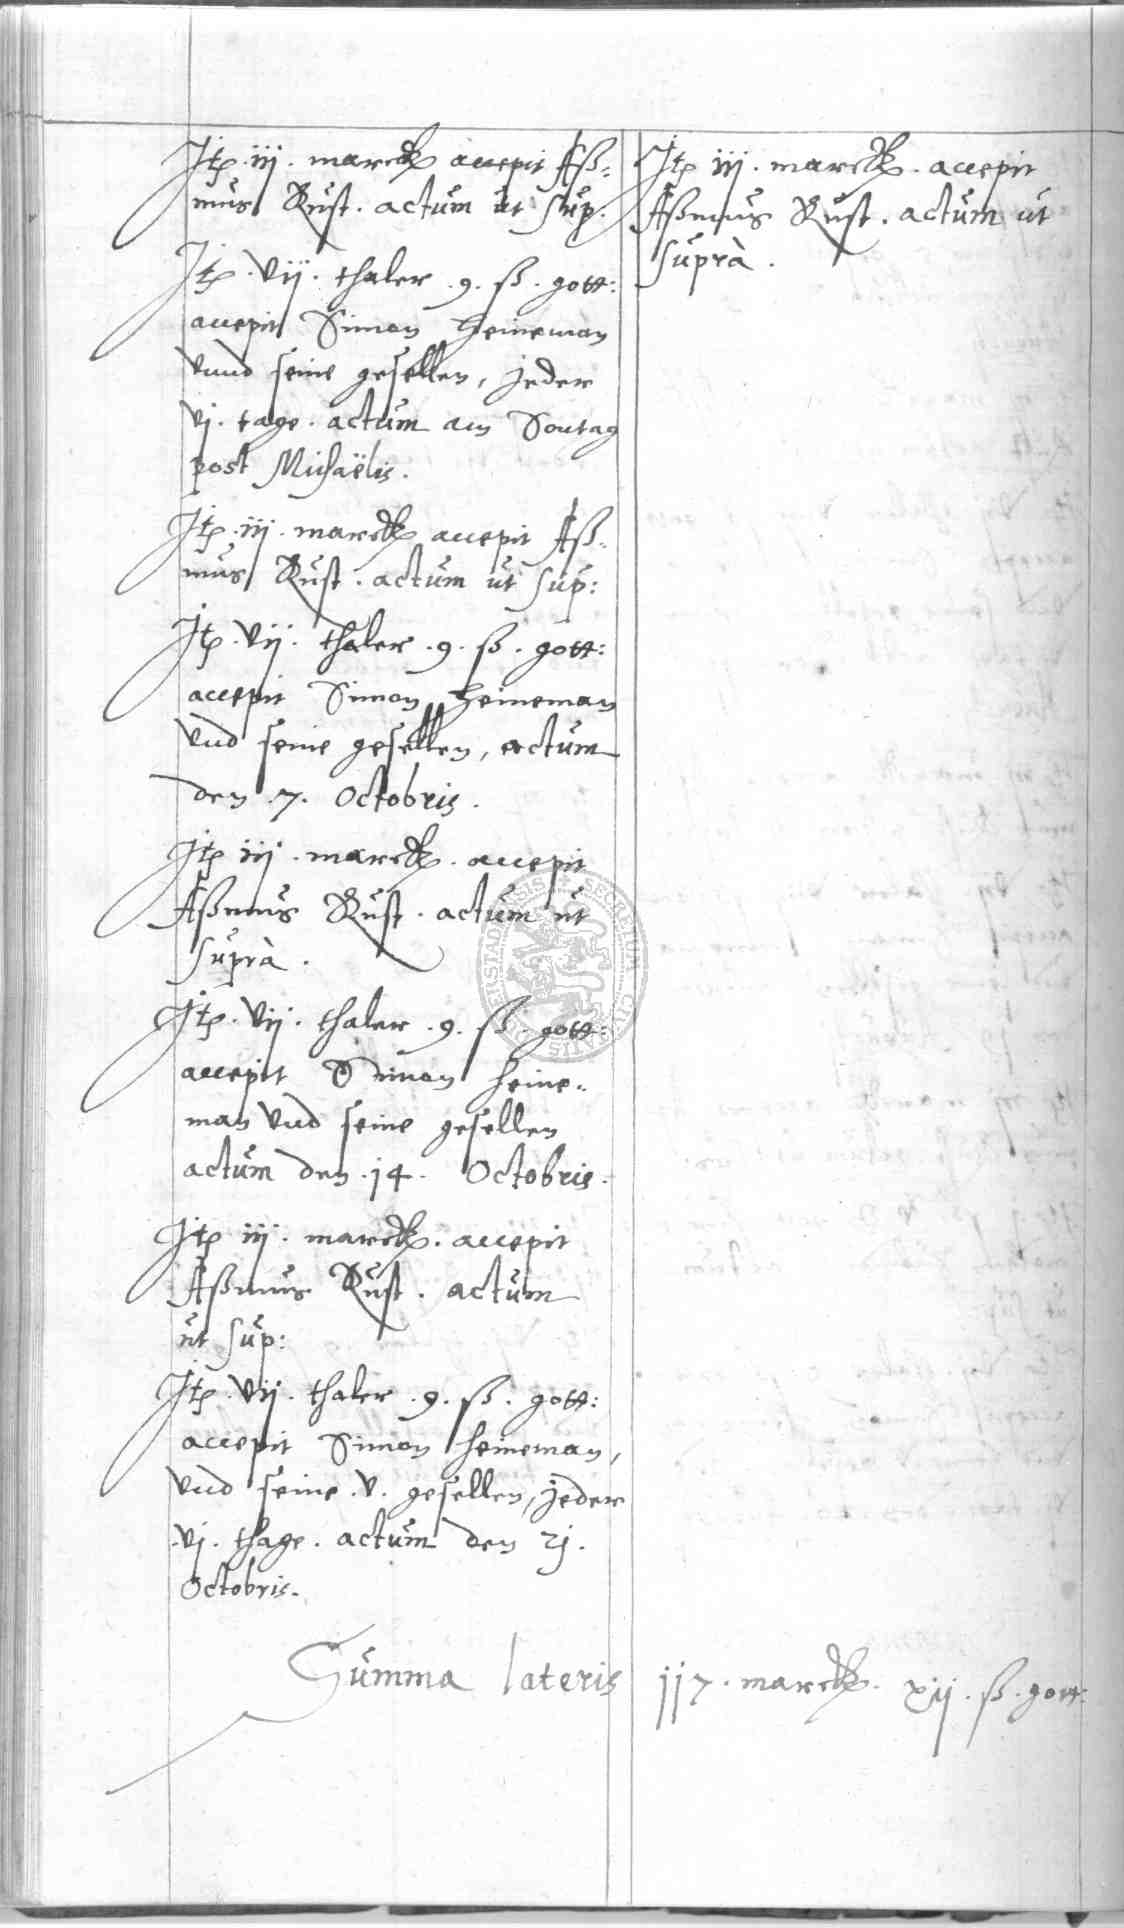 Itp. iij. marck accepit Aß-
mus Rust. actum ut sup.
Itp. vij. thaler .9. ß. gott:
accepit Simon Heineman
vnnd seine gesellen, jeder
vj. tage. actum am Sontag
post Michaëlis.
Itp. iij. marck accepit Aß-
mus Rust. actum ut sup:
Itp. vij. thaler .9. ß. gott:
accepit Simon Heineman
vnd seine gesellen, actum
den .7. Octobris.
Itp iij. marck. accepit
Aßmus Rust. actum ut
suprà.
Itp. vij. thaler .9. ß. gott:
accepit Simon Heine-
man vnd seine gesellen
actum den .14. Octobris.
Itp iij. marck. accepit
Aßmus Rust. actum
ut sup:
Itp. vij. thaler .9. ß. gott:
accepit Simon Heineman,
vnd seine .v. gesellen, jeder
.vj. thage. actum den 2j.
Octobris.
Itp iij. marck. accepit
Aßmus Rust. actum ut
suprà.
Summa lateris jj7. marck. xij. ß. gott:
SECRETUM CIVITATIS